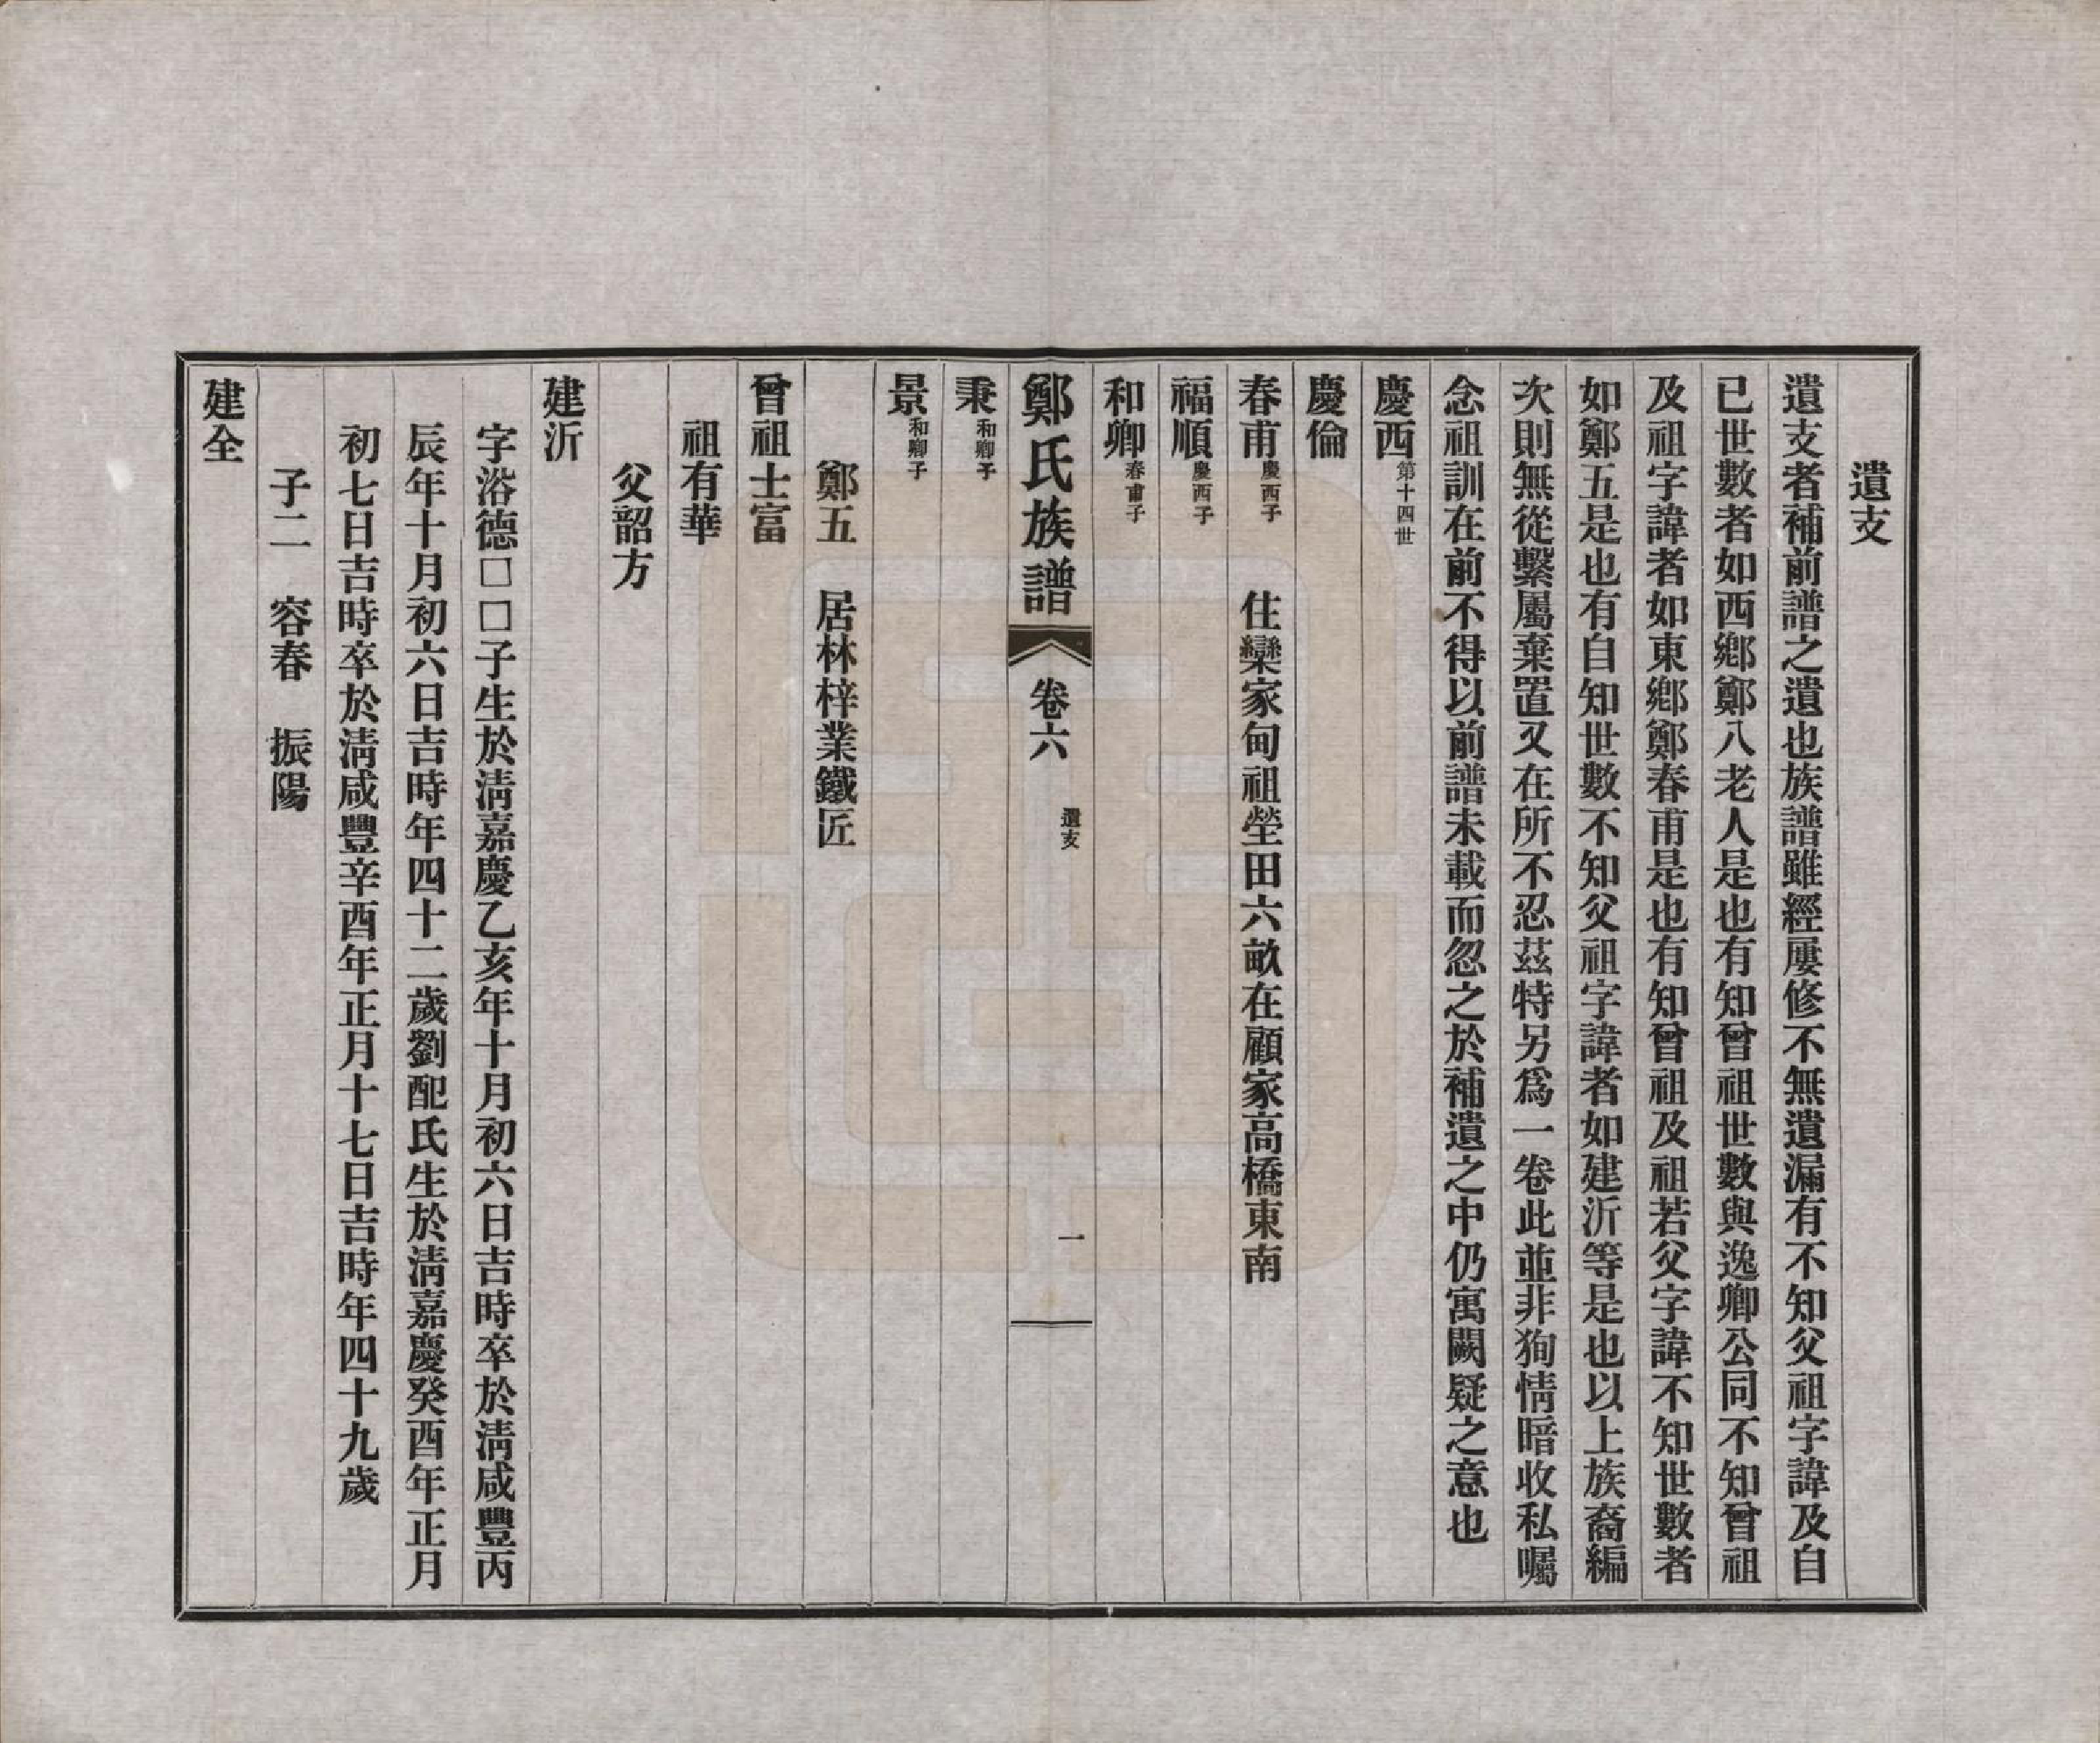 遺支
遺支者補前譜之遺也族譜雖經屢修不無遺漏有不知父祖字諱及自
已世數者如西鄉鄭八老人是也有知曾祖世數與逸卿公同不知曾祖
及祖字諱者如東鄉鄭春甫是也有知曾祖及祖若父字諱不知世數者
如鄭五是也有自知世數不知父祖字諱者如建沂等是也以上族裔編
次則無從繫屬棄置又在所不忍茲特另爲一卷此並非狥情暗收私囑
念祖訓在前不得以前譜未載而忽之於補遺之中仍寓闕疑之意也
慶西第十四世
慶倫
春甫慶西子 住欒家甸祖塋田六畝在顧家高橋東南
福順慶西子
和卿春甫子
鄭氏族譜 卷六 遺支 一
秉和卿子
景和卿子
鄭五 居林梓業鐵匠
曾祖士富
祖有華
父韶方
建沂
字浴德□□子生於清嘉慶乙亥年十月初六日吉時卒於清咸豐丙
辰年十月初六日吉時年四十二歲劉配氏生於清嘉慶癸酉年正月
初七日吉時卒於清咸豐辛酉年正月十七日吉時年四十九歲
子二 容春 振陽
建全